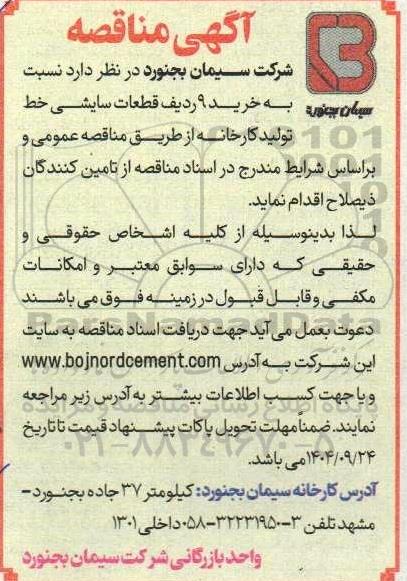 آگهی مناقصه
سیمان بجنورد
شرکت سیمان بجنورد در نظر دارد نسبت
به خرید ۹ ردیف قطعات سایشی خط
تولید کارخانه از طریق مناقصه عمومی و
براساس شرایط مندرج در اسناد مناقصه از تامین کنندگان
ذیصلاح اقدام نماید.
لذا بدینوسیله از کلیه اشخاص حقوقی و
حقیقی که دارای سوابق معتبر و امکانات
مکفی و قابل قبول در زمینه فوق می باشند
دعوت بعمل می آید جهت دریافت اسناد مناقصه به سایت
این شرکت به آدرس www.bojnordcement.com
و یا جهت کسب اطلاعات بیشتر به آدرس زیر مراجعه
نمایند. ضمناً مهلت تحویل پاکات پیشنهاد قیمت تا تاریخ
۱۴۰۴/۰۹/۲۴ می باشد.
۰۲۱-۸۸۳۴۹۶۷۰-۵
آدرس کارخانه سیمان بجنورد: کیلومتر ۳۷ جاده بجنورد-
مشهد تلفن ۳-۳۲۲۳۱۹۵۰-۰۵۸ داخلی ۱۳۰۱
واحد بازرگانی شرکت سیمان بجنورد